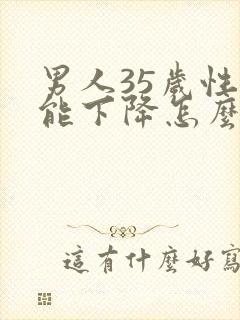 男人35歲性
能下降怎麼
這有什麼好寫